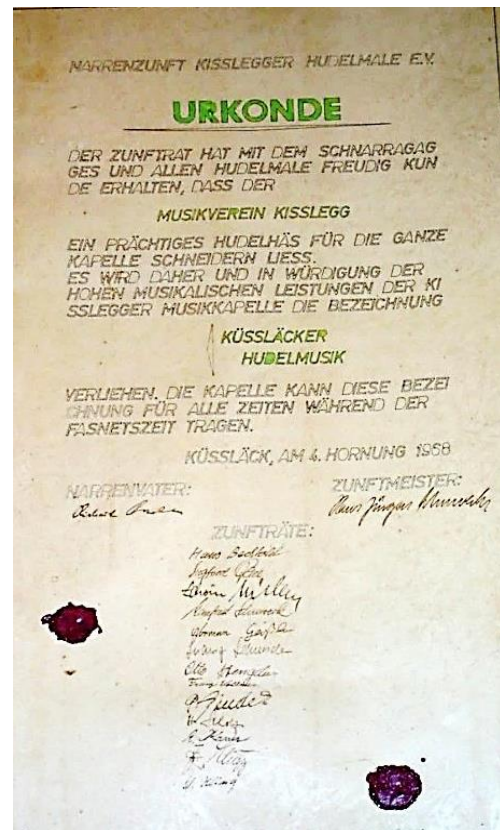 NARRENZUNFT KISSLEGGER HUDELMALE E.V.
URKONDE
DER ZUNFTRAT HAT MIT DEM SCHNARRAGAG
GES UND ALLEN HUDELMALE FREUDIG KUN
DE ERHALTEN, DASS DER
MUSIKVEREIN KISSLEGG
EIN PRÄCHTIGES HUDELHÄS FÜR DIE GANZE
KAPELLE SCHNEIDERN LIESS.
ES WIRD DAHER UND IN WÜRDIGUNG DER
HOHEN MUSIKALISCHEN LEISTUNGEN DER KI
SSLEGGER MUSIKKAPELLE DIE BEZEICHNUNG
KÜSSLÄCKER
HUDELMUSIK
VERLIEHEN. DIE KAPELLE KANN DIESE BEZEI
CHNUNG FÜR ALLE ZEITEN WÄHREND DER
FASNETSZEIT TRAGEN.
KÜSSLÄCK, AM 4. HORNUNG 1968
NARRENVATER: ZUNFTMEISTER:
Hans Jürgen
ZUNFTRÄTE:
Hans
Müller
Otto